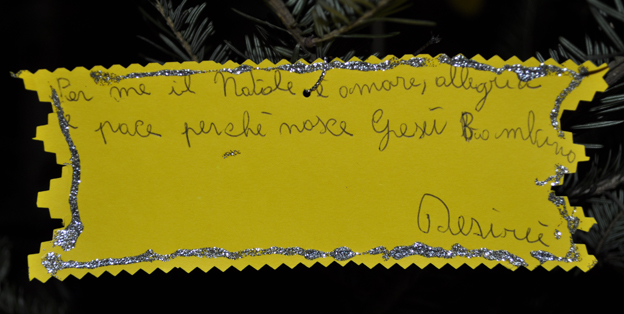 Per me il Natale è amore, allegria
e pace perchè nasce Gesù Bambino
Desirèe